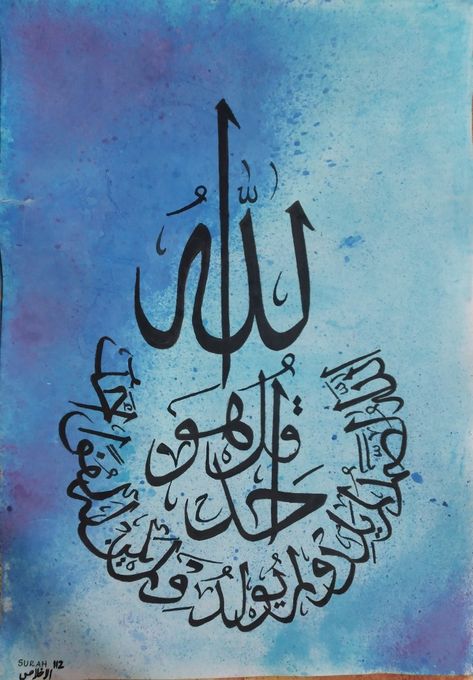 قل هو الله احد
الله الصمد لم يلد ولم يولد ولم يكن له كفوا احد
SURAH 112
الاخلاص